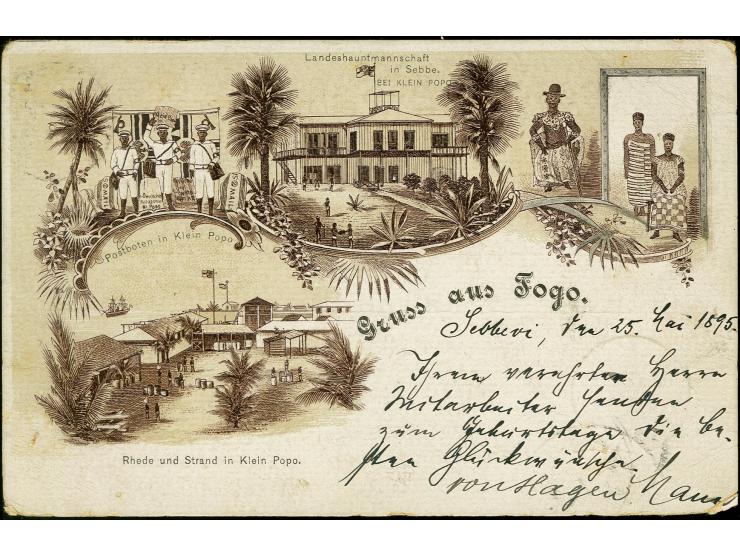 Landeshauptmannschaft
in Sebbe.
BEI KLEIN POPO
Postboten in Klein Popo
Gruss aus Togo.
Sebbevi, den 25. Mai 1895.
Ihrem verehrten Herrn
Mitarbeiter senden
zum Geburtstage die be-
sten Glückwünsche
von Hagen
Rhede und Strand in Klein Popo.